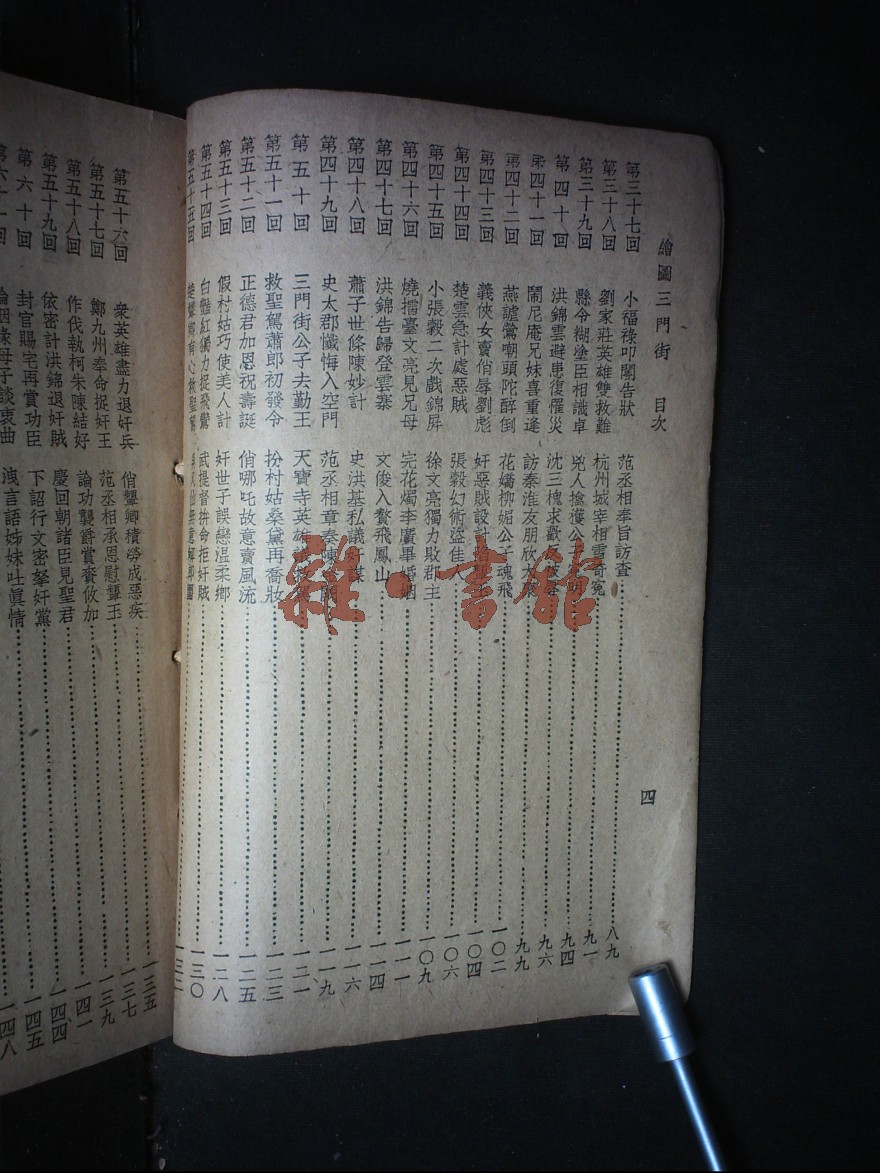 繪圖三門街 目次
四
第三十七回 小福祿叩閽告狀 范丞相奉旨訪查 八九
第三十八回 劉家莊英雄雙救難 杭州城宰相雪奇冤 九一
第三十九回 縣令糊塗臣相識卓 兇人擒獲公子 明 九四
第四十回 洪錦雲避患復罹災 沈三槐求歡反 九六
第四十一回 鬧尼庵兄妹喜重逢 訪秦淮友朋欣大 九九
第四十二回 燕謔鶯嘲頭陀醉倒 花嬌柳媚公子魂飛 一〇二
第四十三回 義俠女賣俏辱劉彪 奸惡賊設計 一〇四
第四十四回 楚雲急計處惡賊 張穀幻術盜佳人 一〇六
第四十五回 小張穀二次戲錦屏 徐文亮獨力敗郡主 一〇九
第四十六回 燒擂臺文亮見兄母 完花燭李廣畢婚姻 一一一
第四十七回 洪錦告歸登雲寨 文俊入贅飛鳳山 一一四
第四十八回 蕭子世條陳妙計 史洪基私議奸謀 一一六
第四十九回 史太郡懺悔入空門 范丞相章奏陳 一一九
第五十回 三門街公子去勤王 天寶寺英雄 一二一
第五十一回 救聖駕蕭郎初發令 扮村姑桑黛再喬妝 一二三
第五十二回 正德君加恩祝壽誕 俏哪吒故意賣風流 一二五
第五十三回 假村姑巧使美人計 奸世子誤戀溫柔鄉 一二八
第五十四回 白豔紅獨力捉飛鸞 武提督拚命拒奸賊 一三〇
第五十五回 有心救聖駕 一三二
第五十六回 衆英雄盡力退奸兵 俏顰卿積勞成惡疾 一三五
第五十七回 鄭九州奉命捉奸王 范丞相承恩慰顰玉 一三七
第五十八回 作伐執柯朱陳結好 論功襲爵賞賚攸加 一三九
第五十九回 依密計洪錦退奸賊 慶回朝諸臣見聖君 一四一
第六十回 封官賜宅再賞功臣 下詔行文密拏奸黨 一四四
第六十一回 論姻緣母子談衷曲 洩言語姊妹吐眞情 一四五
一四八
雜·書館